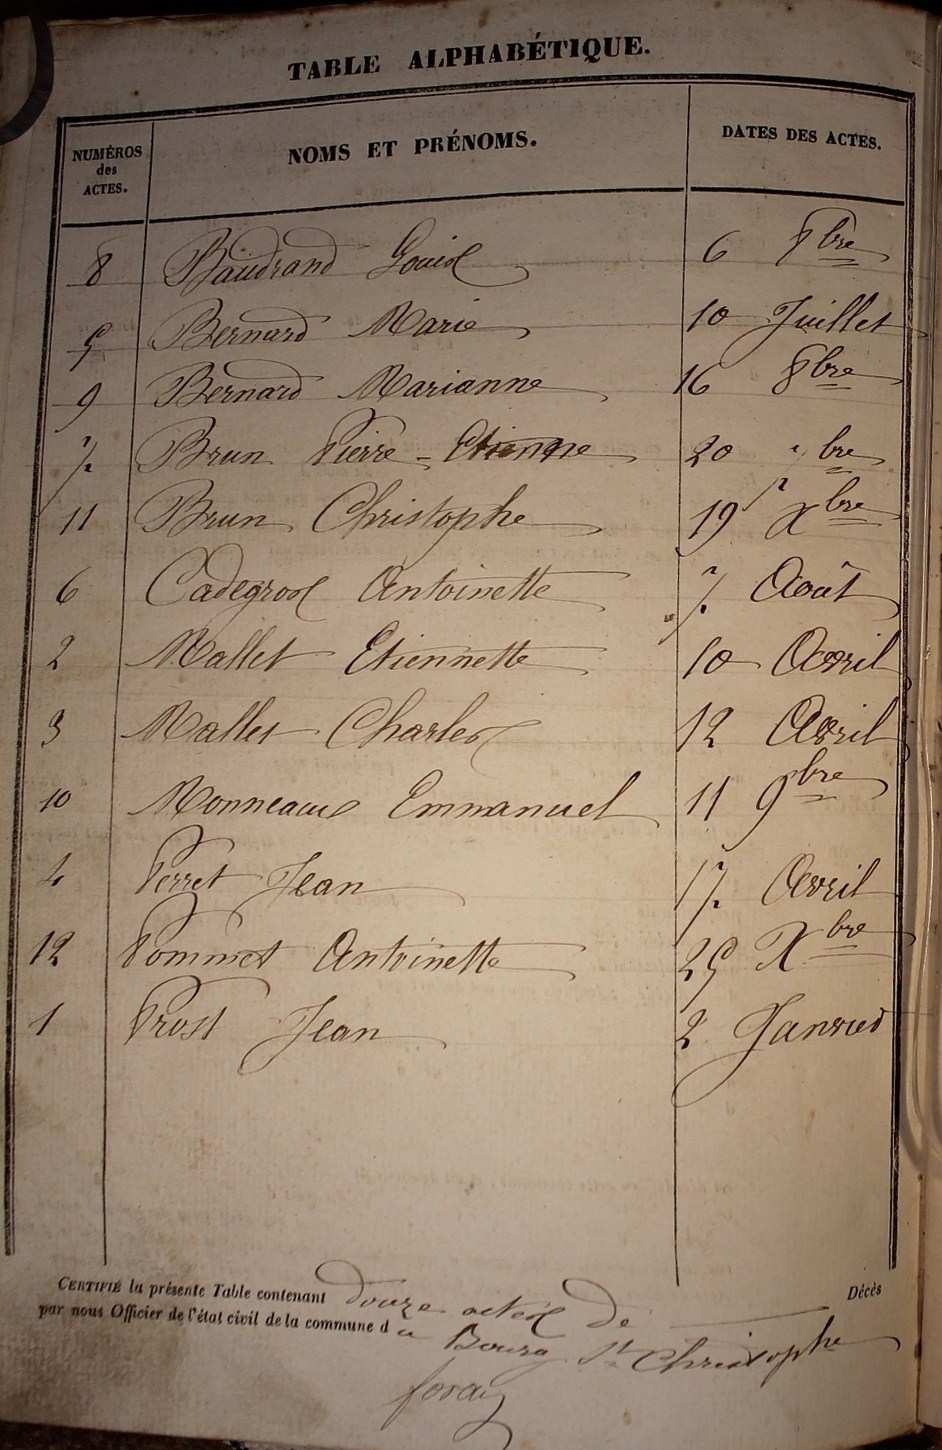 TABLE ALPHABÉTIQUE.
NUMÉROS des ACTES. NOMS ET PRÉNOMS. DATES DES ACTES.
8 Baudrand Louis 6 8bre
5 Bernard Marie 10 Juillet
9 Bernard Marianne 16 8bre
7 Brun Pierre-Etienne 20 7bre
11 Brun Christophe 19 Xbre
6 Cadegros Antoinette 7 Août
2 Mallet Etiennette 10 Avril
3 Mallet Charles 12 Avril
10 Monneaus Emmanuel 11 9bre
4 Perret Jean 17 Avril
12 Pommet Antoinette 25 Xbre
1 Prost Jean 2 Janvier
CERTIFIÉ la présente Table contenant douze actes de Décès
par nous Officier de l'état civil de la commune d u Bourg St Christophe